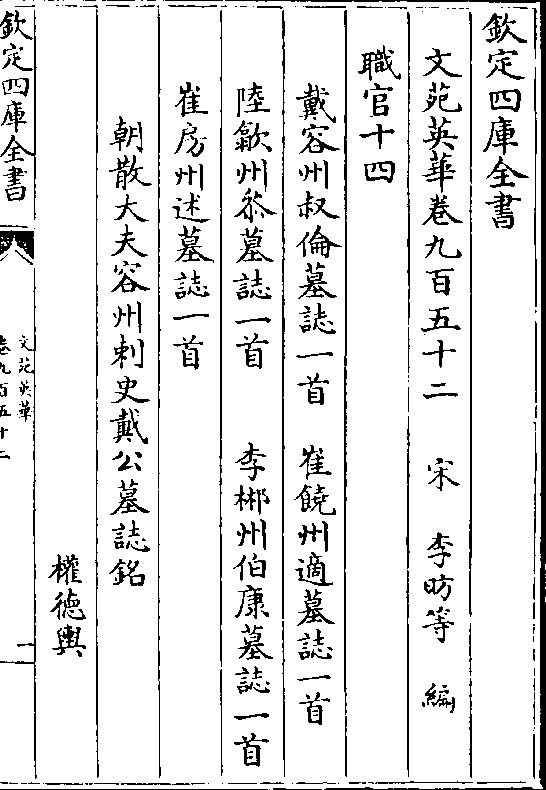 欽定四庫全書
文苑英華卷九百五十二 宋 李昉等 編
職官十四
戴容州叔倫墓誌一首 崔饒州適墓誌一首
陸歙州叅墓誌一首 李郴州伯康墓誌一首
崔房州述墓誌一首
朝散大夫容州刺史戴公墓誌銘
權德輿
欽定四庫全書
文苑英華
卷九百五十二
一